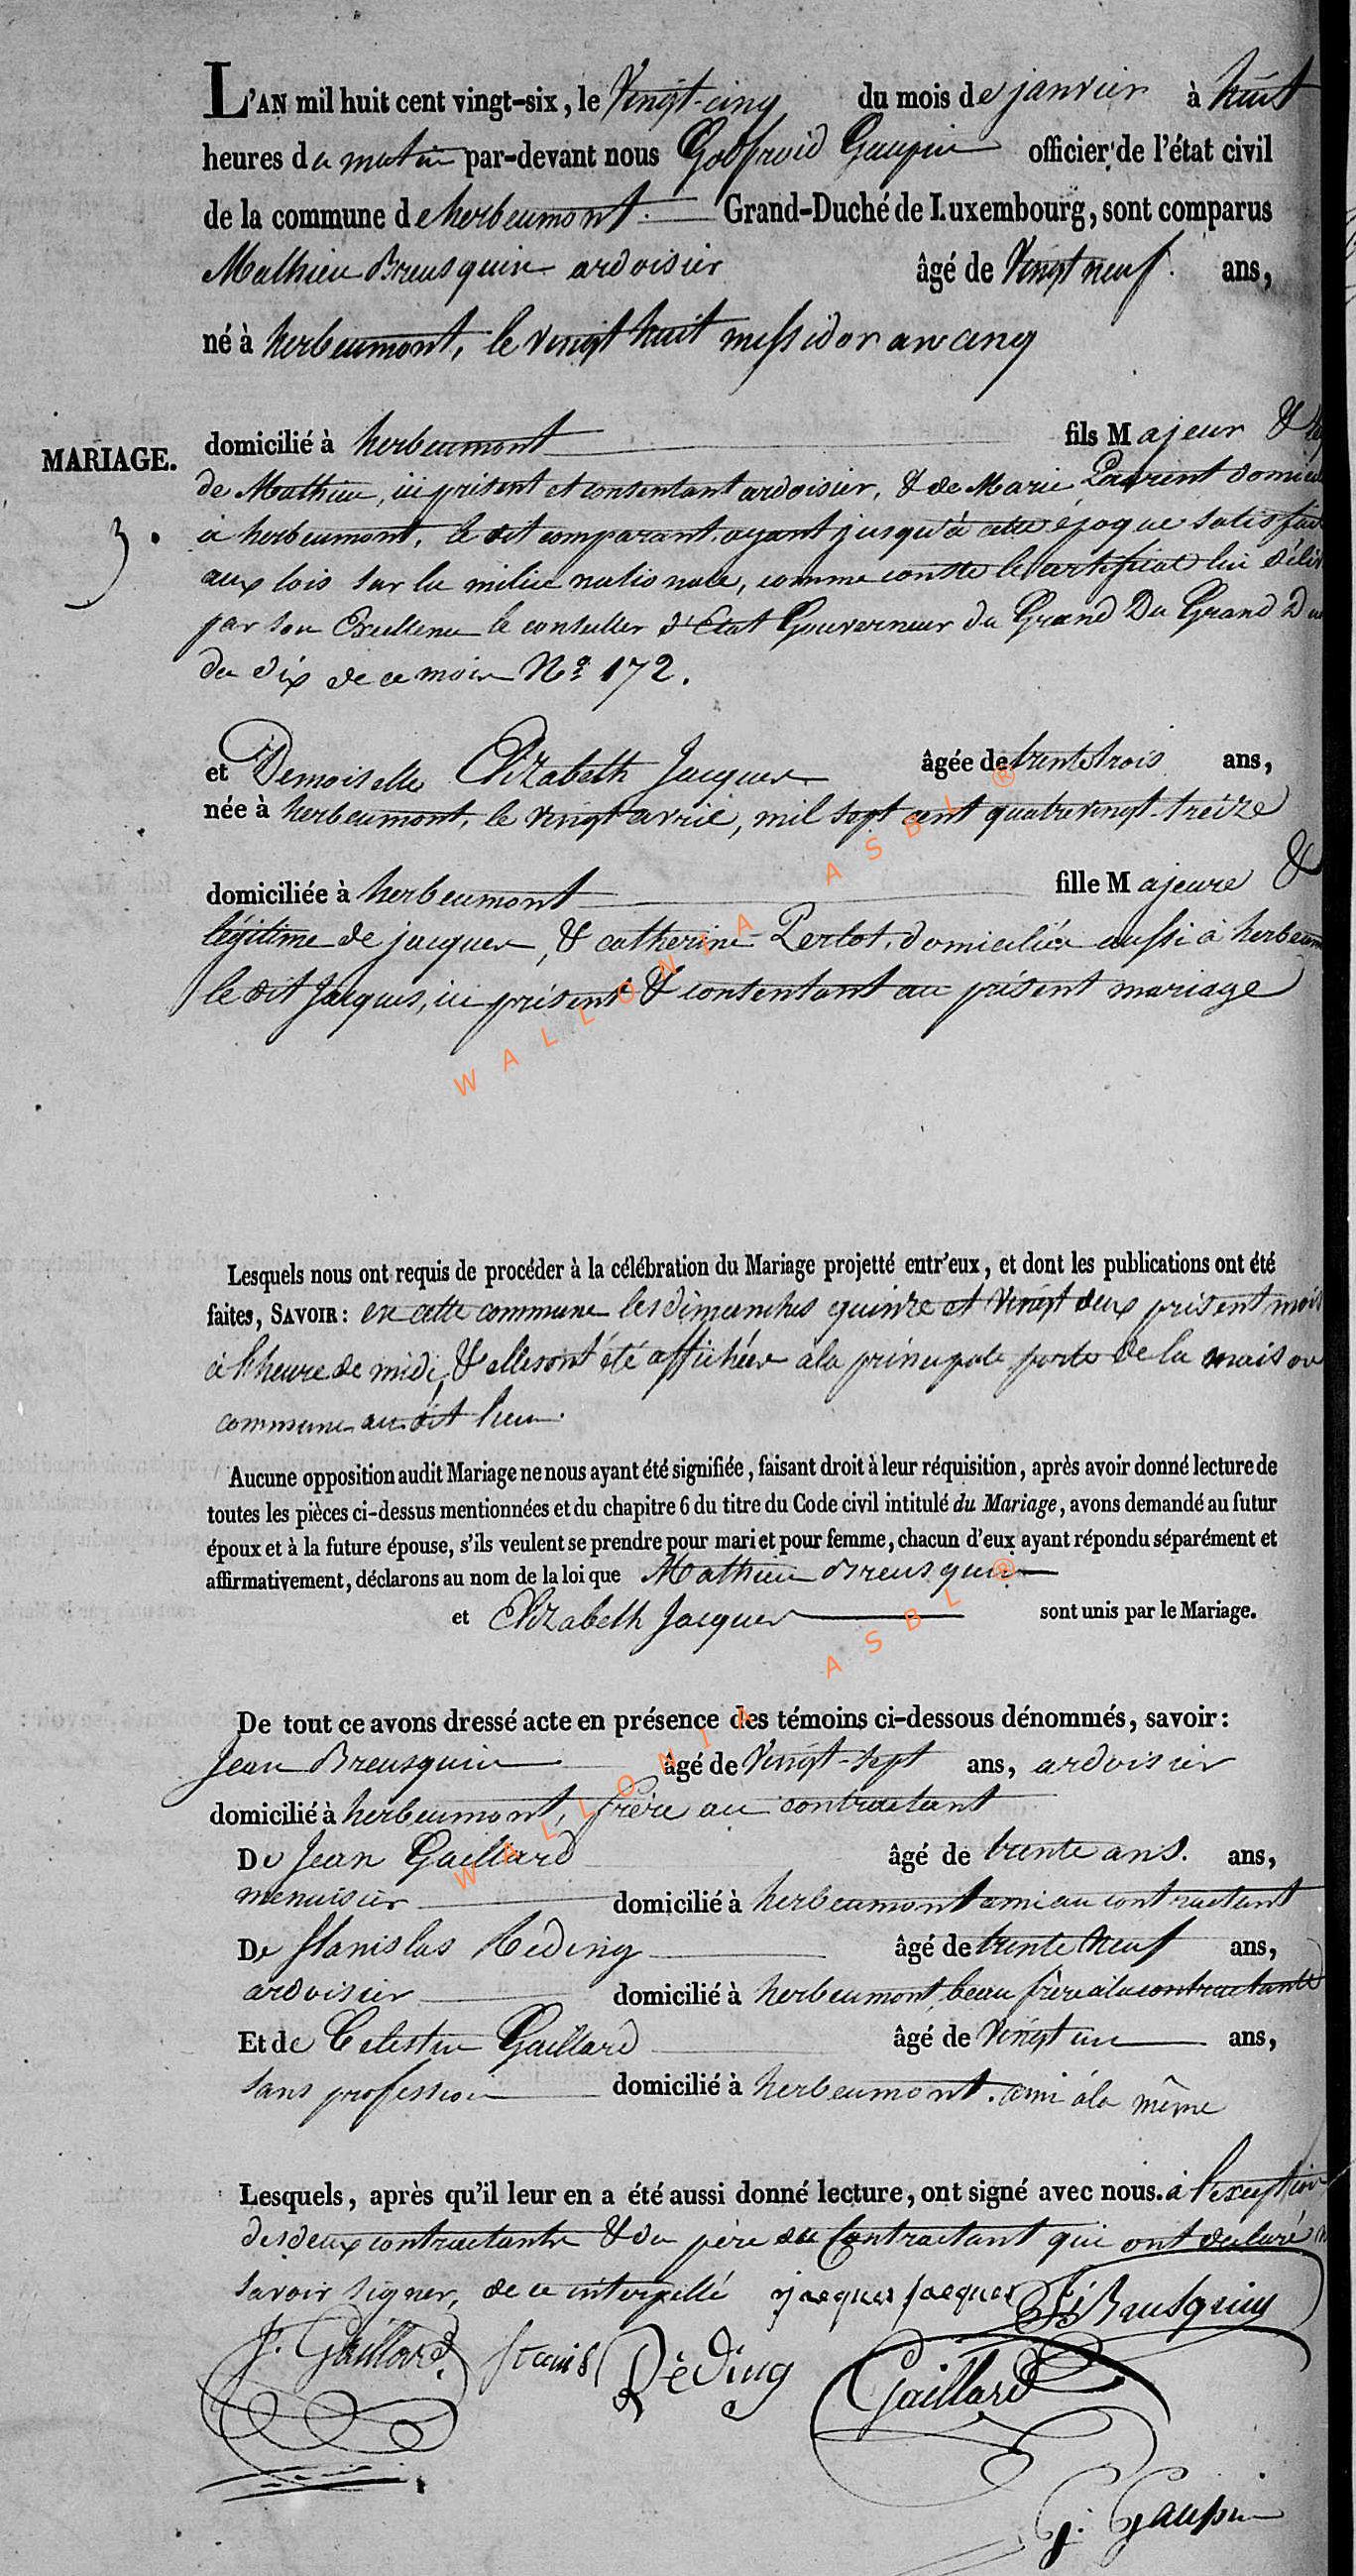 L'AN mil huit cent vingt-six, le Vingt-cinq du mois de janvier à huit
heures du matin par-devant nous Godfroid Gaupin officier de l'état civil
de la commune de herbeumont. Grand-Duché de Luxembourg, sont comparus
Mathieu Breusquin ardoisier âgé de Vingt neuf. ans,
né à herbeumont, le vingt huit messidor an cinq
domicilié à herbeumont fils Majeur &
MARIAGE.
de Mathieu, ici présent et consentant ardoisier, & de Marie Laurent
3.
à herbeumont, le dit comparant ayant jusqu'à cette époque
aux lois sur la milice nationale, comme conste le certificat lui
par son Excellence le conseiller d'Etat Gouverneur du Grand Du Grand
du dix de ce mois Nº 172.
et Demoiselle Elizabeth Jacques âgée de trente trois ans,
née à herbeumont, le vingt avril, mil sept cent quatrevingt-treize
domiciliée à herbeumont fille Majeure &
légitime de jacques, & catherine Perlot, domiciliés aussi à
le dit Jacques, ici présent & consentant au présent mariage
WALLONIA ASBL ®
Lesquels nous ont requis de procéder à la célébration du Mariage projetté entr'eux, et dont les publications ont été
faites, SAVOIR: en cette commune les dimanches quinze et vingt deux présent mois
à l'heure de midi, & elles ont été affichées à la principale porte de la maison
commune au dit lieu.
Aucune opposition audit Mariage ne nous ayant été signifiée, faisant droit à leur réquisition, après avoir donné lecture de
toutes les pièces ci-dessus mentionnées et du chapitre 6 du titre du Code civil intitulé du Mariage, avons demandé au futur
époux et à la future épouse, s'ils veulent se prendre pour mari et pour femme, chacun d'eux ayant répondu séparément et
affirmativement, déclarons au nom de la loi que Mathieu Breusquin
et Elizabeth Jacques sont unis par le Mariage.
De tout ce avons dressé acte en présence des témoins ci-dessous dénommés, savoir:
Jean Breusquin âgé de Vingt-sept ans, ardoisier
domicilié à herbeumont, frère au contractant
De Jean Gaillard âgé de trente ans. ans,
menuisier domicilié à herbeumont ami au contractant
De Stanislas Réding âgé de trente neuf ans,
ardoisier domicilié à herbeumont, beau frère à la contractante
Et de Celestin Gaillard âgé de Vingt un ans,
sans profession domicilié à herbeumont. ami à la même
WALLONIA ASBL ®
Lesquels, après qu'il leur en a été aussi donné lecture, ont signé avec nous. à l'exception
des deux contractants & du père du Contractant qui ont declaré
savoir signer, de ce interpellé jacques jacques J Breusquin
J. Gaillard. Stanis Réding Gaillard
G. Gaupin